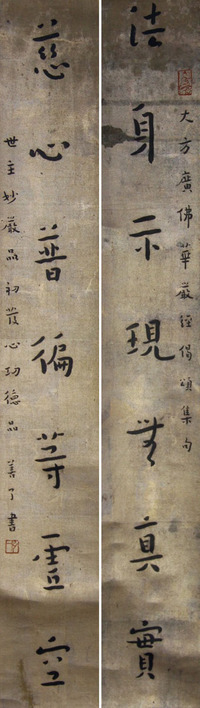 大方廣佛華嚴經偈頌集句
法身示現無真實
慈心普徧等虛空
世主妙嚴品初發心功德品 善了書